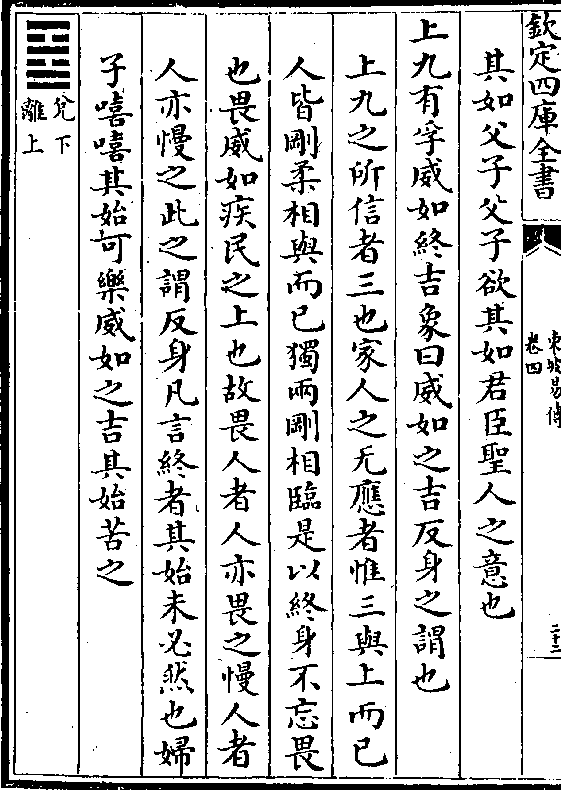 欽定四庫全書
東坡易傳
卷四
二十二
其如父子父子欲其如君臣聖人之意也
上九有孚威如終吉象曰威如之吉反身之謂也
上九之所信者三也家人之无應者惟三與上而已
人皆剛柔相與而已獨兩剛相臨是以終身不忘畏
也畏威如疾民之上也故畏人者人亦畏之慢人者
人亦慢之此之謂反身凡言終者其始未必然也婦
子嘻嘻其始可樂威如之吉其始苦之
兌下
離上